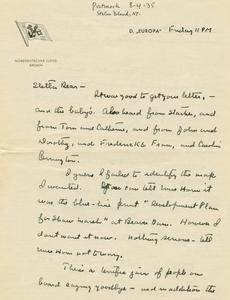 Postmark 8-4-35
Staten Island, NY.
NORDDEUTSCHER LLOYD
BREMEN
D. „EUROPA" Friday 11 PM
Stella Dear —
It was good to get your letter, —
and the baby's. Also heard from Starker, and
from Tom and Catherine, and from John and
Dorothy, and Frederick & Fran, and Carolin
I guess I failed to identify the map
I wanted. you can tell Miss Horn it
was the blue-line print "Development Plan
for Shaw Marsh" at Beaver Dam. However I
don't want it now. Nothing serious — tell
Miss Horn not to worry.
There is a terrific jam of people on
board saying goodbye — and in addition the